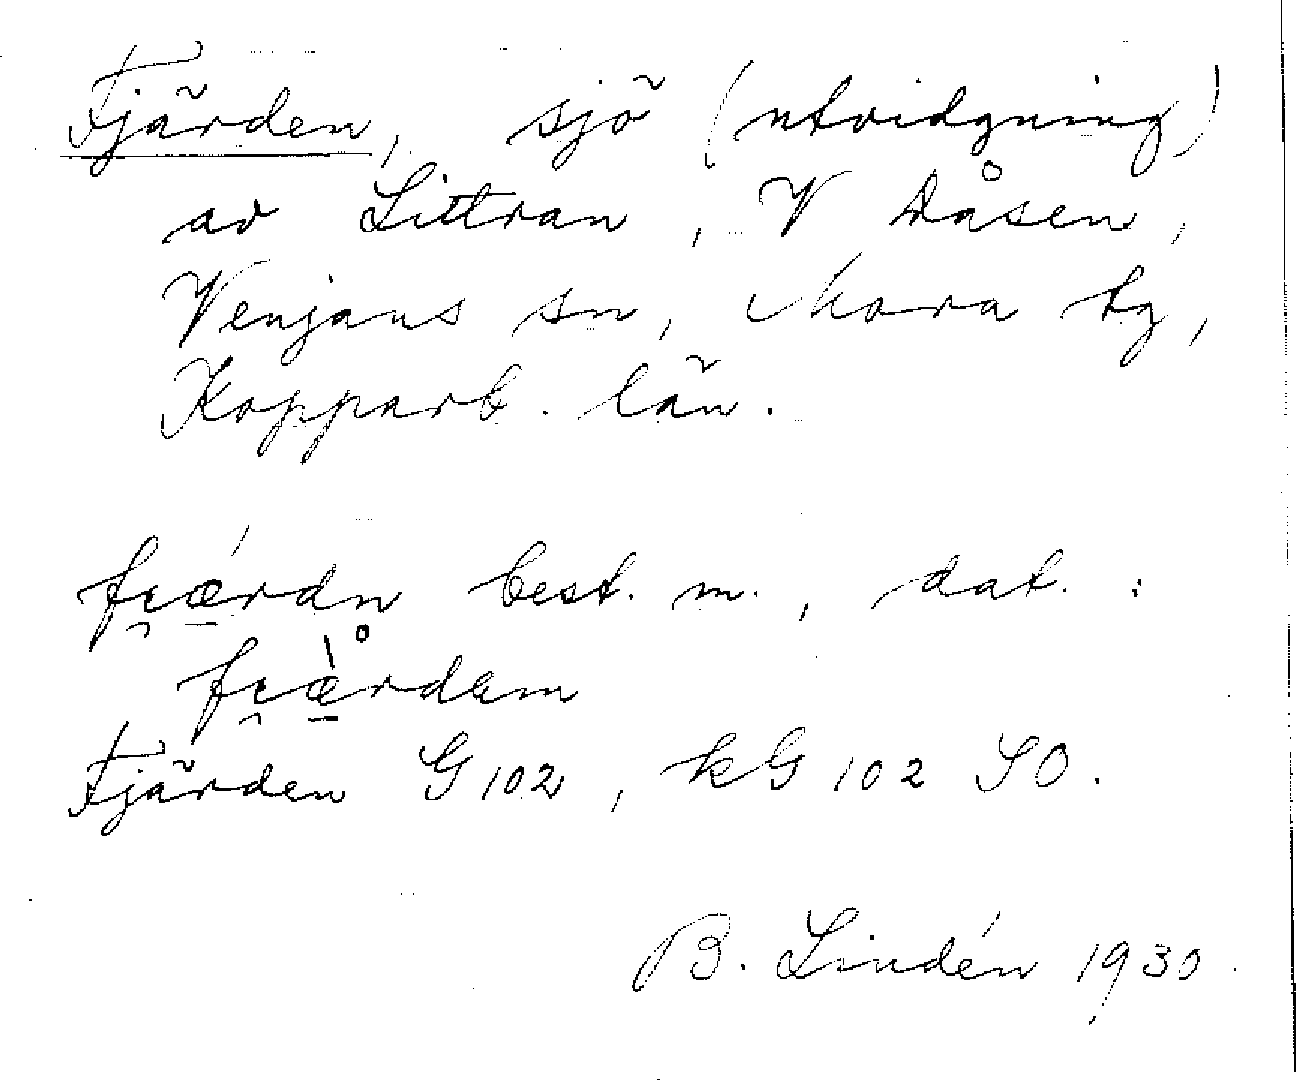 Fjärden, sjö (utvidgning)
av Littran, V Dåsen,
Venjans sn, Mora tg,
Kopparb. län.
fi̯ǽrdn best. m., dat. :
fi̯æ̀̊rdem
Fjärden G 102, kG 102 SO.
B. Lindén 1930.